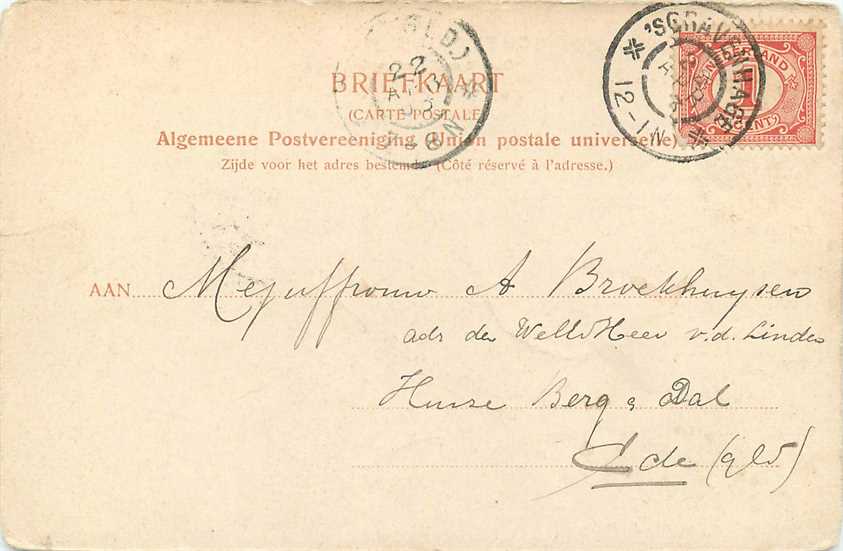 BRIEFKAART
(CARTE POSTALE)
Algemeene Postvereeniging (Union postale universelle)
Zijde voor het adres bestemd. (Côté réservé à l'adresse.)
'S GRAVENHAGE
12-1N
NEDERLAND
1
CENT
22
8-N
AAN Mejuffrouw A Broekhuysen
adr der WelEdHeer v.d. Linden
Huize Berg & Dal
Ede (gld)